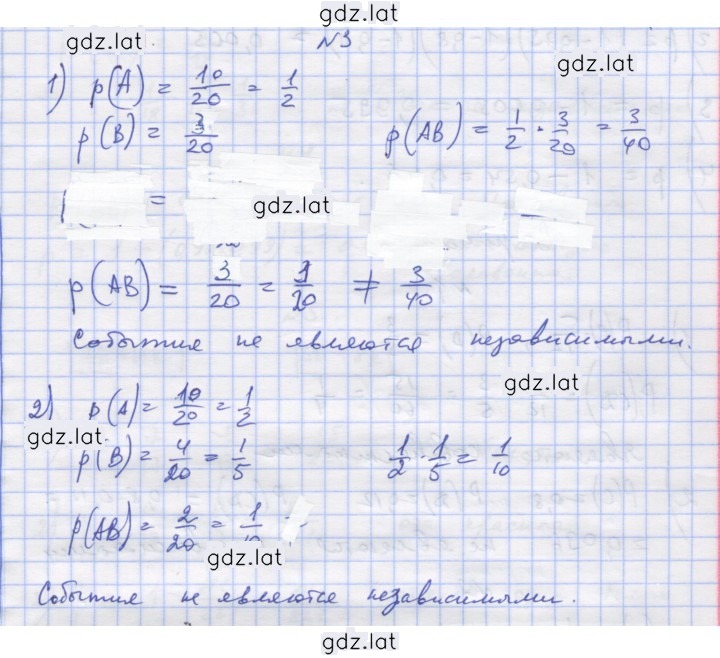 gdz.lat
№3
gdz.lat
gdz.lat
1) p(A) = 10/20 = 1/2
p(B) = 3/20 p(AB) = 1/2 · 3/20 = 3/40
=
gdz.lat
p(AB) = 3/20 = 3/20 ≠ 3/40
События не являются независимыми.
gdz.lat
2) p(A) = 10/20 = 1/2
gdz.lat
p(B) = 4/20 = 1/5 1/2 · 1/5 = 1/10
p(AB) = 2/20 = 1/10
gdz.lat
События не являются независимыми.
gdz.lat